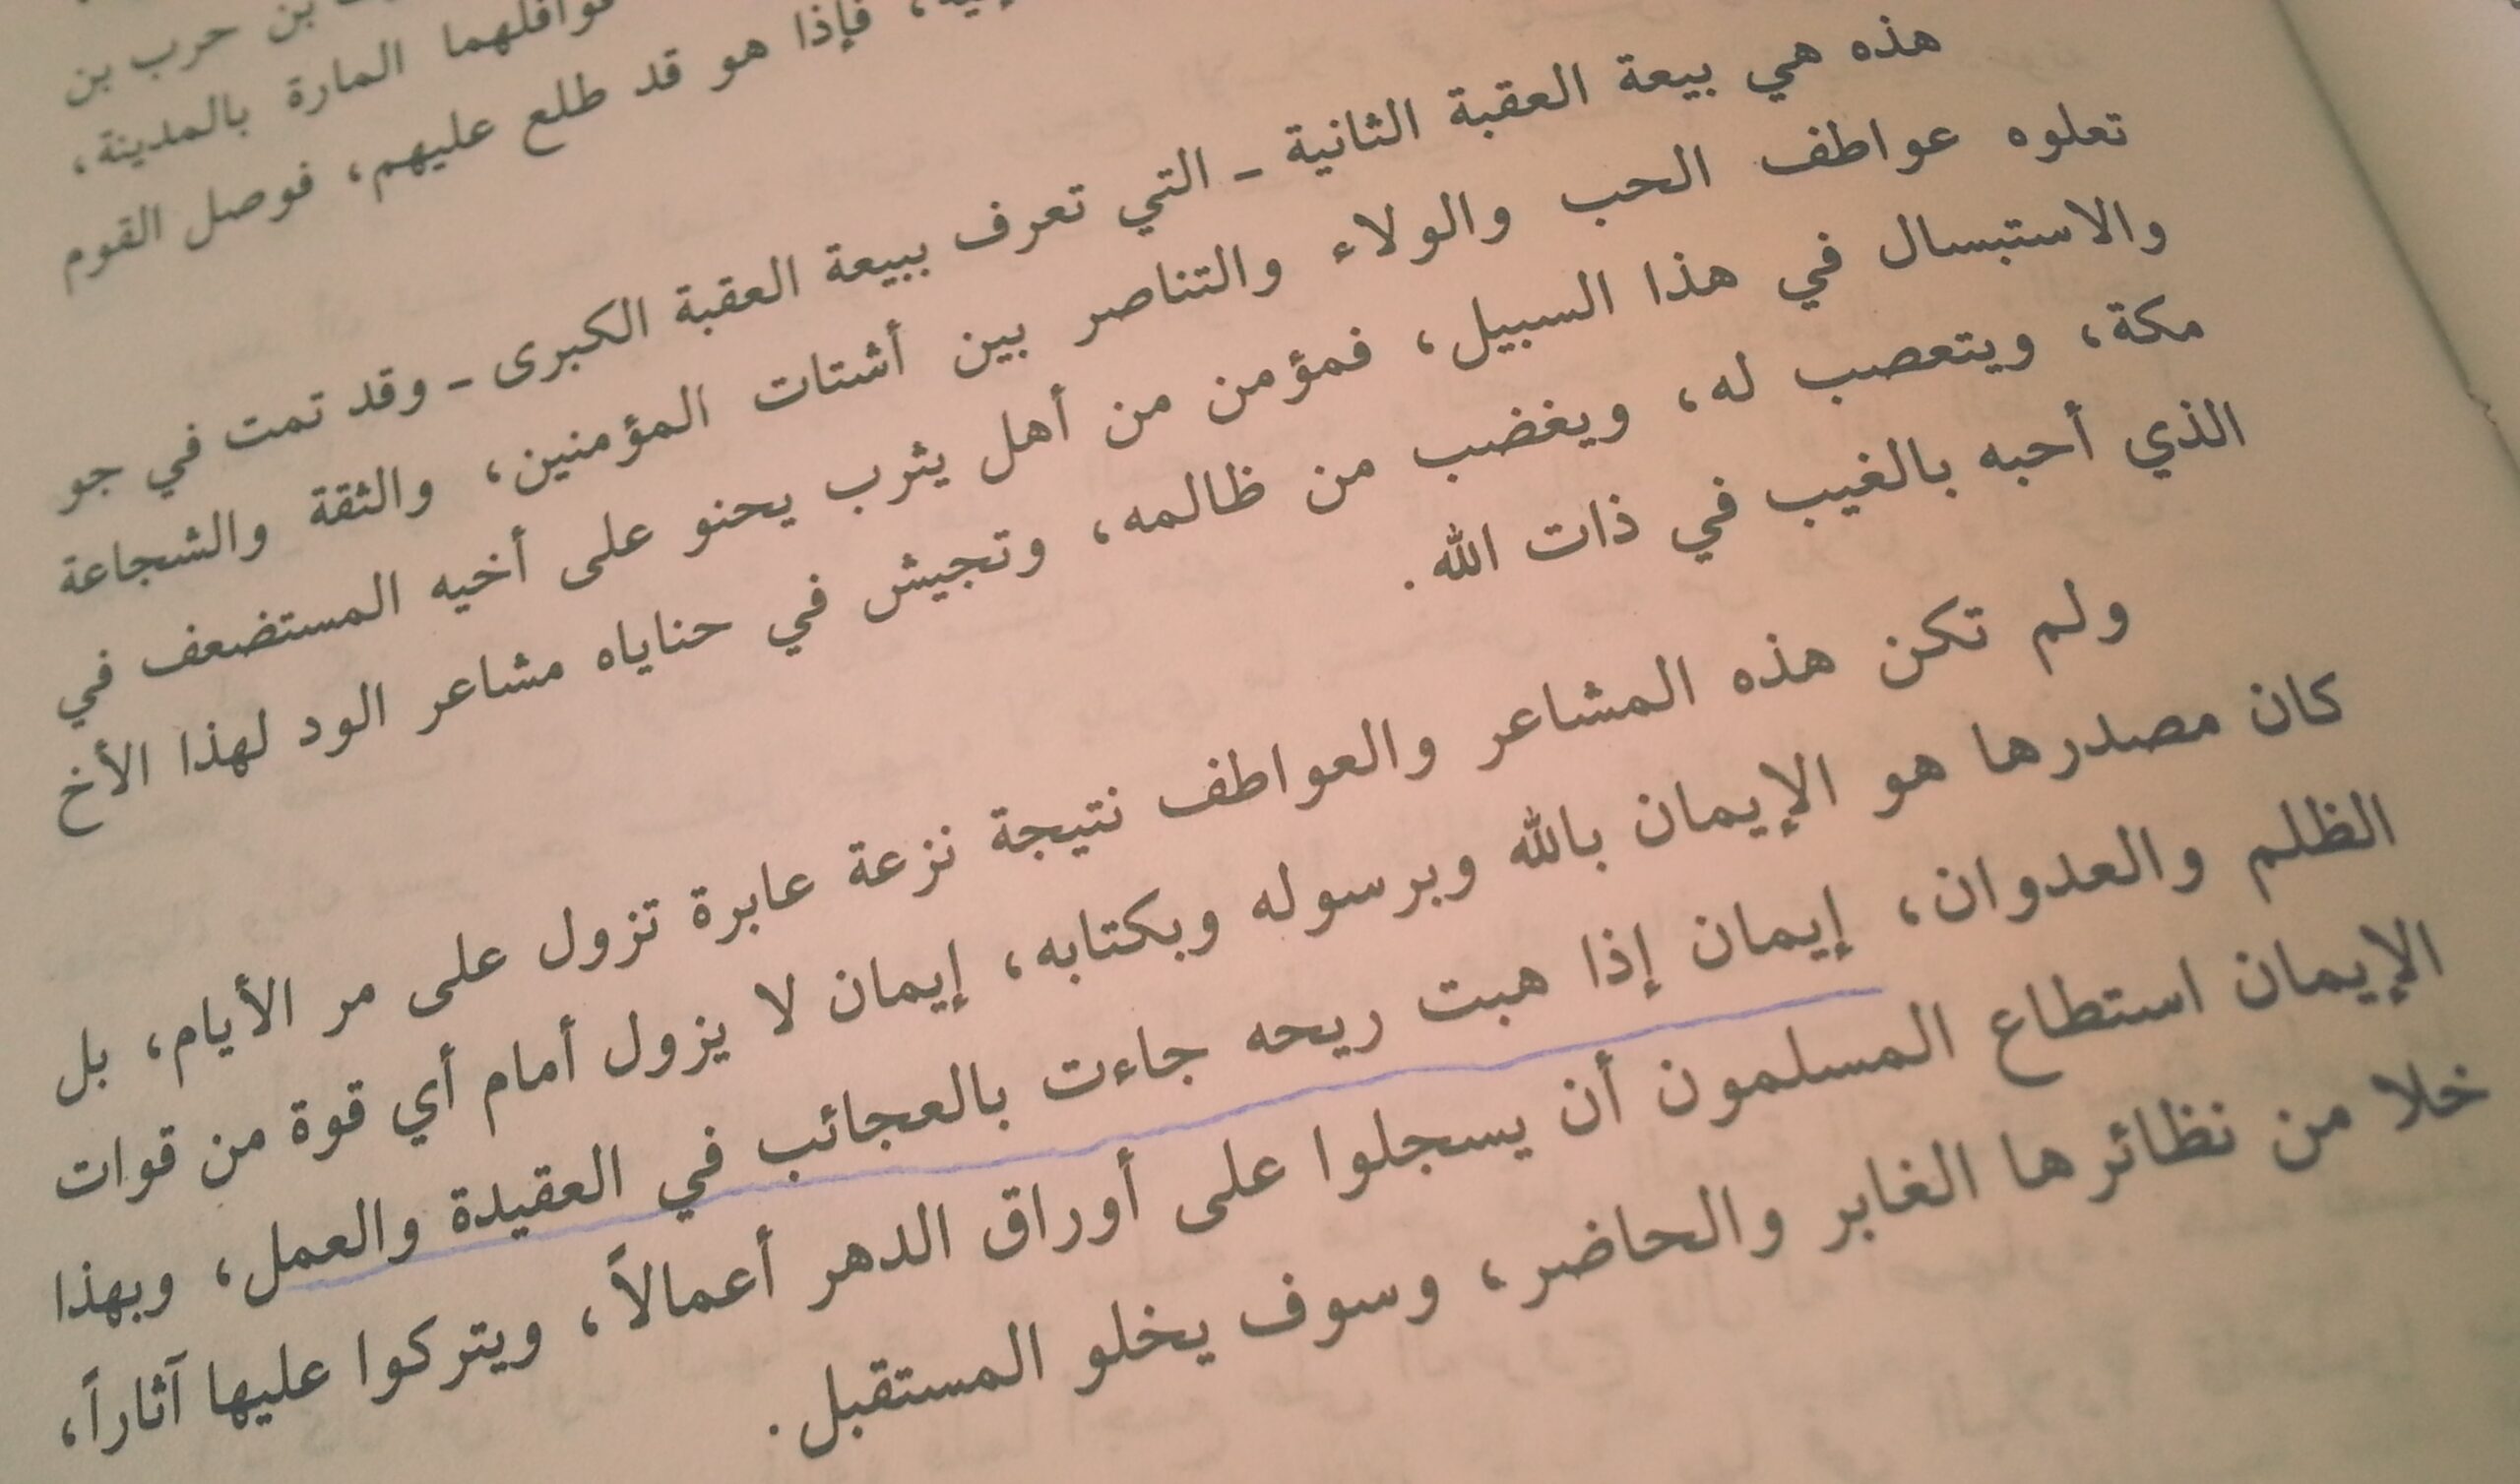 بن حرب بن
قوافلهما المارة بالمدينة،
فإذا هو قد طلع عليهم، فوصل القوم
هذه هي بيعة العقبة الثانية ـ التي تعرف ببيعة العقبة الكبرى ـ وقد تمت في جو
تعلوه عواطف الحب والولاء والتناصر بين أشتات المؤمنين، والثقة والشجاعة
والاستبسال في هذا السبيل، فمؤمن من أهل يثرب يحنو على أخيه المستضعف في
مكة، ويتعصب له، ويغضب من ظالمه، وتجيش في حناياه مشاعر الود لهذا الأخ
الذي أحبه بالغيب في ذات الله.
ولم تكن هذه المشاعر والعواطف نتيجة نزعة عابرة تزول على مر الأيام، بل
كان مصدرها هو الإيمان بالله وبرسوله وبكتابه، إيمان لا يزول أمام أي قوة من قوات
الظلم والعدوان، إيمان إذا هبت ريحه جاءت بالعجائب في العقيدة والعمل، وبهذا
الإيمان استطاع المسلمون أن يسجلوا على أوراق الدهر أعمالاً، ويتركوا عليها آثاراً،
خلا من نظائرها الغابر والحاضر، وسوف يخلو المستقبل.